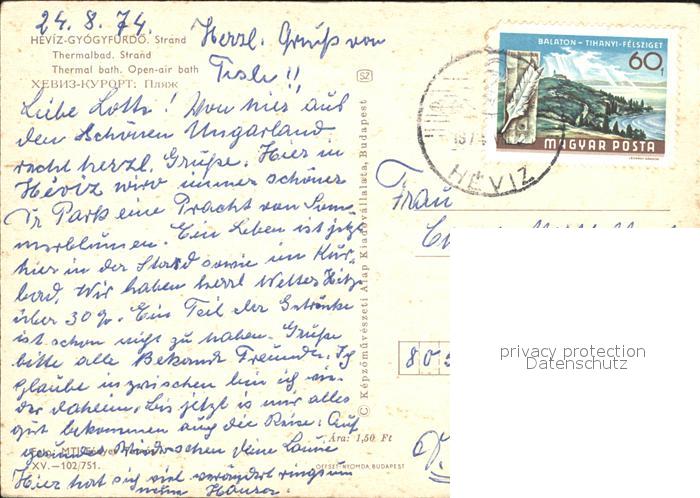 24.8.74.
Herzl. Gruß von
HÉVÍZ-GYÓGYFÜRDŐ. Strand
Thermalbad. Strand
Thermal bath. Open-air bath
ХЕВИЗ-КУРОРТ: Пляж
SZ
Liebe Lotte! Von hier aus
den Schönen Ungarland
recht herzl. Grüße. Hier in
Hévíz wird immer schöner
Park eine Pracht von Som
merblumen. Ein Leben ist jetzt
hier in der Stard sowie im Kur
bad. Wir haben herrl Wetter Hitze
über 30%. Ein Teil der Getränke
ist schon nicht zu haben. Grüße
bitte alle Bekannte Freunde. Ich
glaube inzwischen bin ich wie
der daheim. Bis jetzt is mir alles
gut bekommen auch die Reise. Auf
Wiedersehen deine
Hier hat sich viel verändert ringsum
neue Häuser.
Foto: MTI
XV.—102/751.
Ára: 1,50 Ft
OFFSET-NYOMDA, BUDAPEST
© Képzőművészeti Alap Kiadóvállalata, Budapest
BALATON - TIHANYI-FÉLSZIGET
60f
MAGYAR POSTA
HÉVIZ
Frau
805
privacy protection
Datenschutz